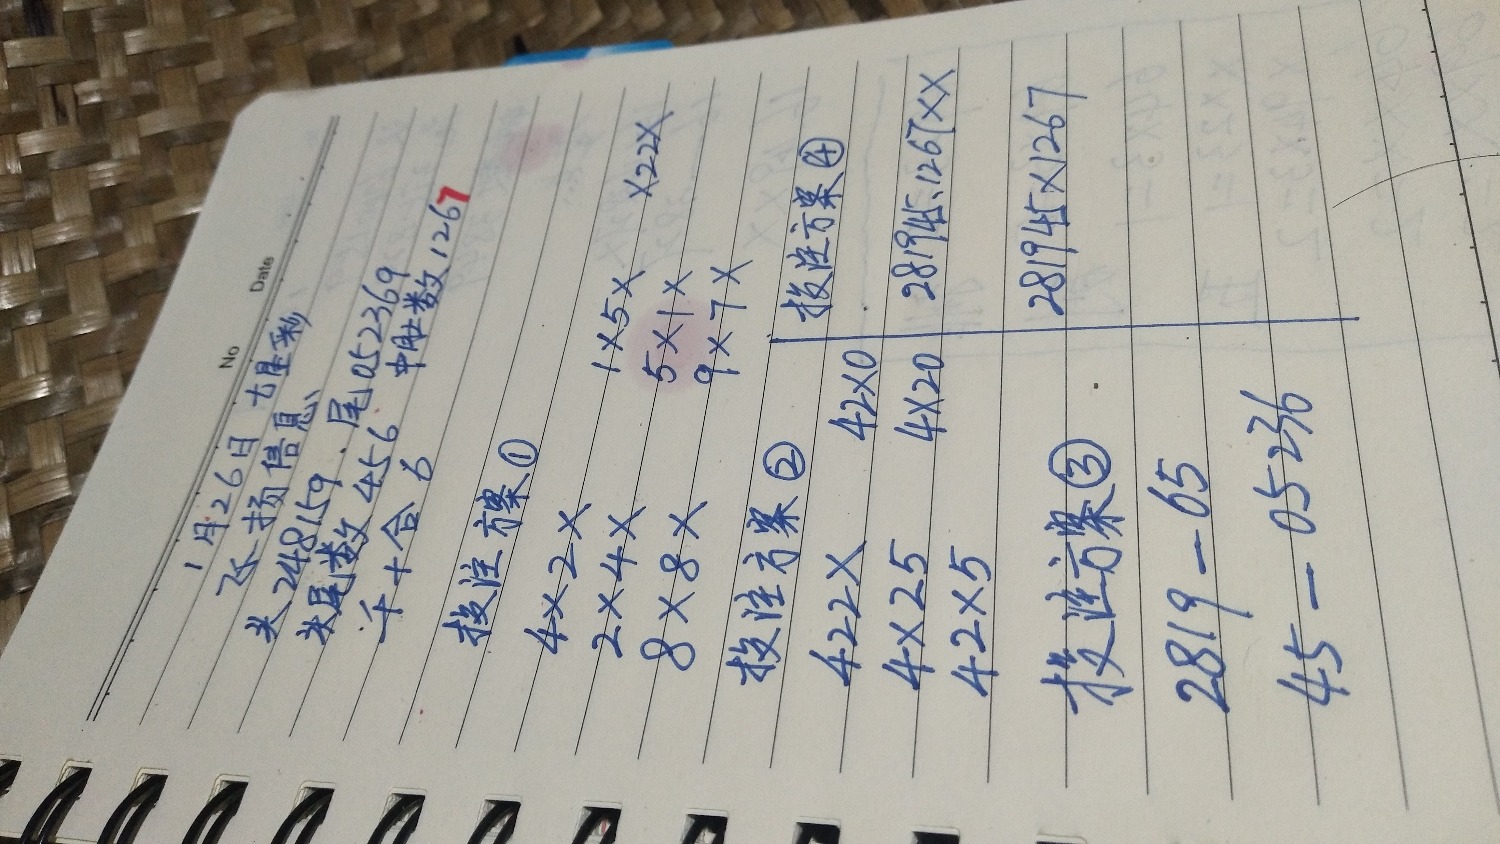 No Date
1月26日 七星彩
飞扬信息
头248159.尾052369
头尾数456 中肚数1267
千+合6
投注方案①
4×2× 1×5× ×22×
2×4× 5×1×
8×8× 9×7×
投注方案②
422× 42×0
4×25 4×20
42×5
投注方案④
281945、1267××
281945×1267
投注方案③
2819—65
45—05236